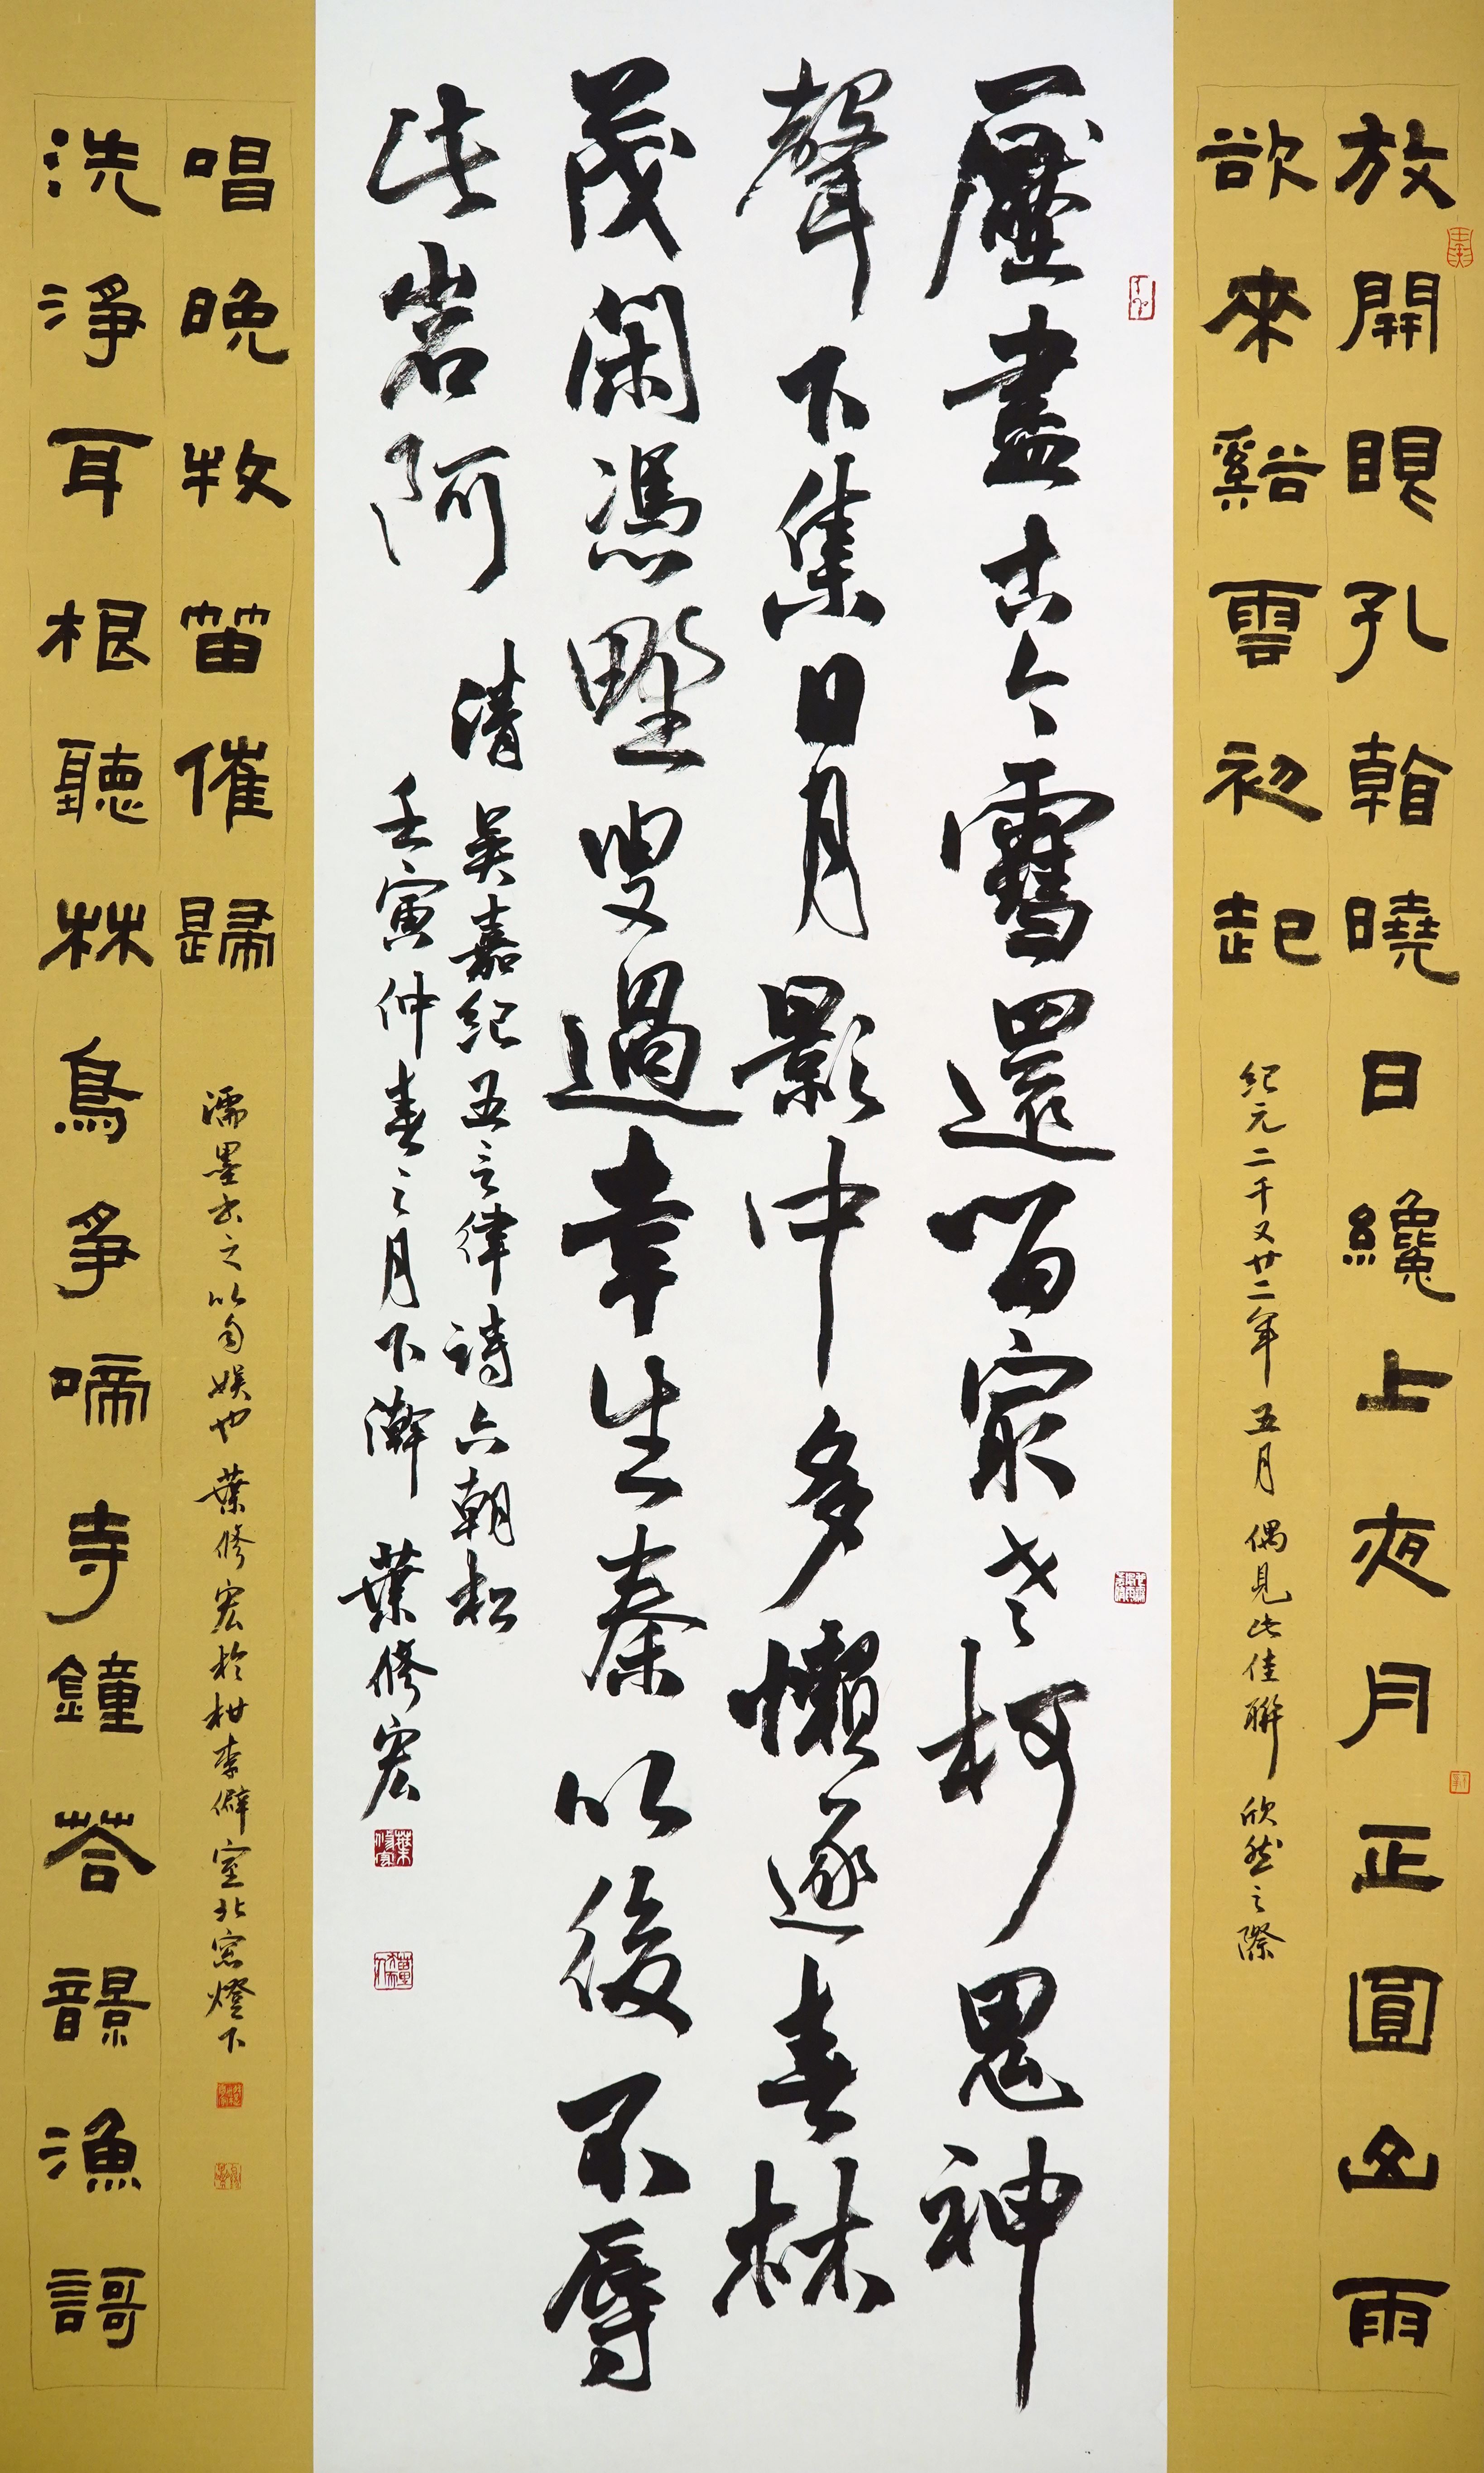 放開眼孔看曉日纔上夜月正圓山雨
欲來谿雲初起
紀元二千又廿二年 五月 偶見此佳聯 欣然之際
壓盡古今雪還留最老柯鬼神
聲下集日月影中多懶逐春林
茂閑憑野叟過幸生秦以後不辱
此岩阿
清 吳嘉紀五言律詩六朝松
壬寅仲春之月下澣 葉修宏
洗淨耳根聽林鳥爭啼寺鐘荅響漁謌
唱晚牧笛催歸
濡墨書之以自娛也 葉修宏於柑李僻室北窓燈下